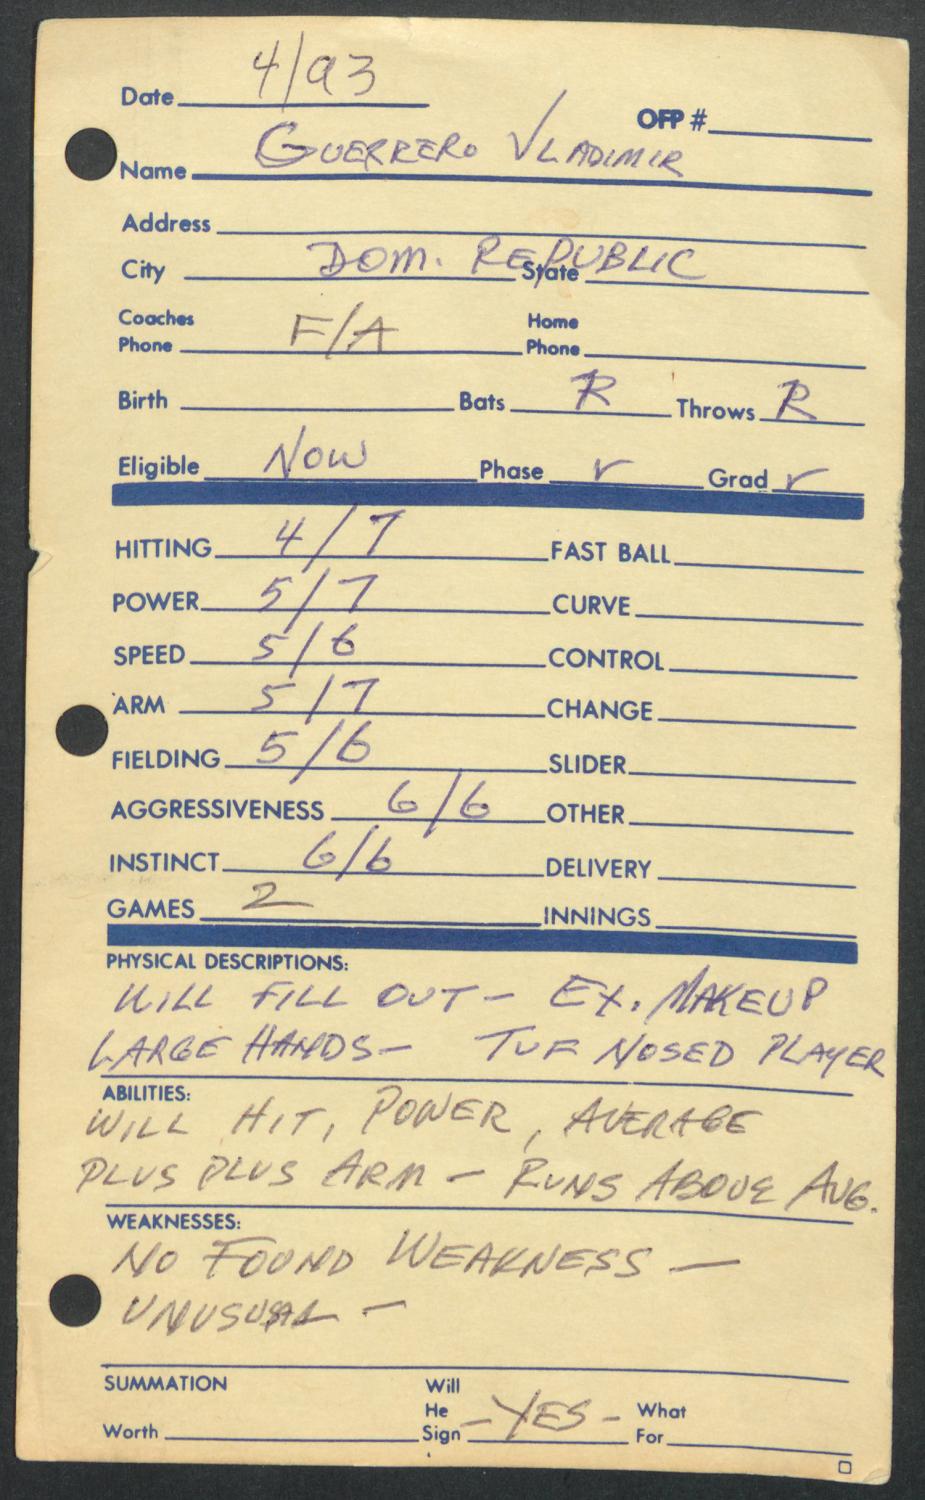 Date 4/93
OFP #
Name GUERRERO VLADIMIR
Address
City DOM. REPUBLIC State
Coaches Phone F/A Home Phone
Birth Bats R Throws R
Eligible NOW Phase r Grad r
HITTING 4/7 FAST BALL
POWER 5/7 CURVE
SPEED 5/6 CONTROL
ARM 5/7 CHANGE
FIELDING 5/6 SLIDER
AGGRESSIVENESS 6/6 OTHER
INSTINCT 6/6 DELIVERY
GAMES 2 INNINGS
PHYSICAL DESCRIPTIONS:
WILL FILL OUT - EX. MAKEUP
LARGE HANDS - TUF NOSED PLAYER
ABILITIES:
WILL HIT, POWER, AVERAGE
PLUS PLUS ARM - RUNS ABOVE AVG.
WEAKNESSES:
NO FOUND WEAKNESS -
UNUSUAL -
SUMMATION
Worth Will He Sign - YES - What For